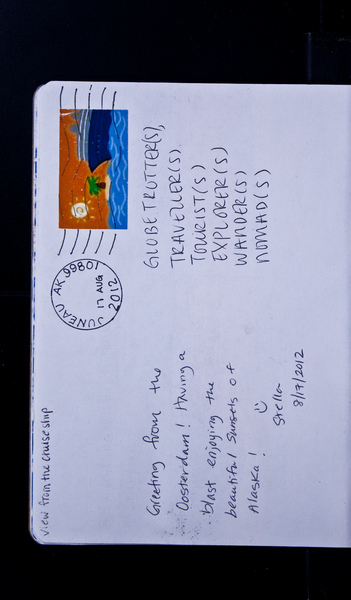 view from the cruise ship
JUNEAU AK 99801
17 AUG
2012
Greeting from the
Oosterdam! Having a
blast enjoying the
beautiful sunsets of
Alaska!
Stella
8/17/2012
GLOBETRUTTER(S),
TRAVELLER(S),
TOURIST(S)
EXPLORER(S)
WANDER(S)
NOMAD(S)